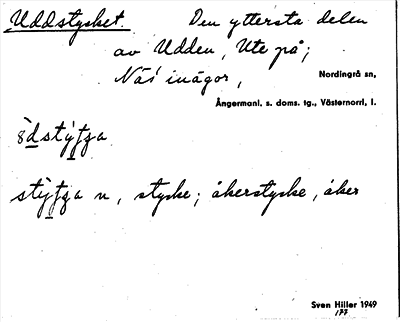 Uddstycket. Den yttersta delen
av Udden, Ute på;
Näs' inägor, Nordingrå sn,
Ångermanl. s. doms. tg., Västernorrl. l.
stycke; åkerstycke, åker
Sven Hiller 1949
177